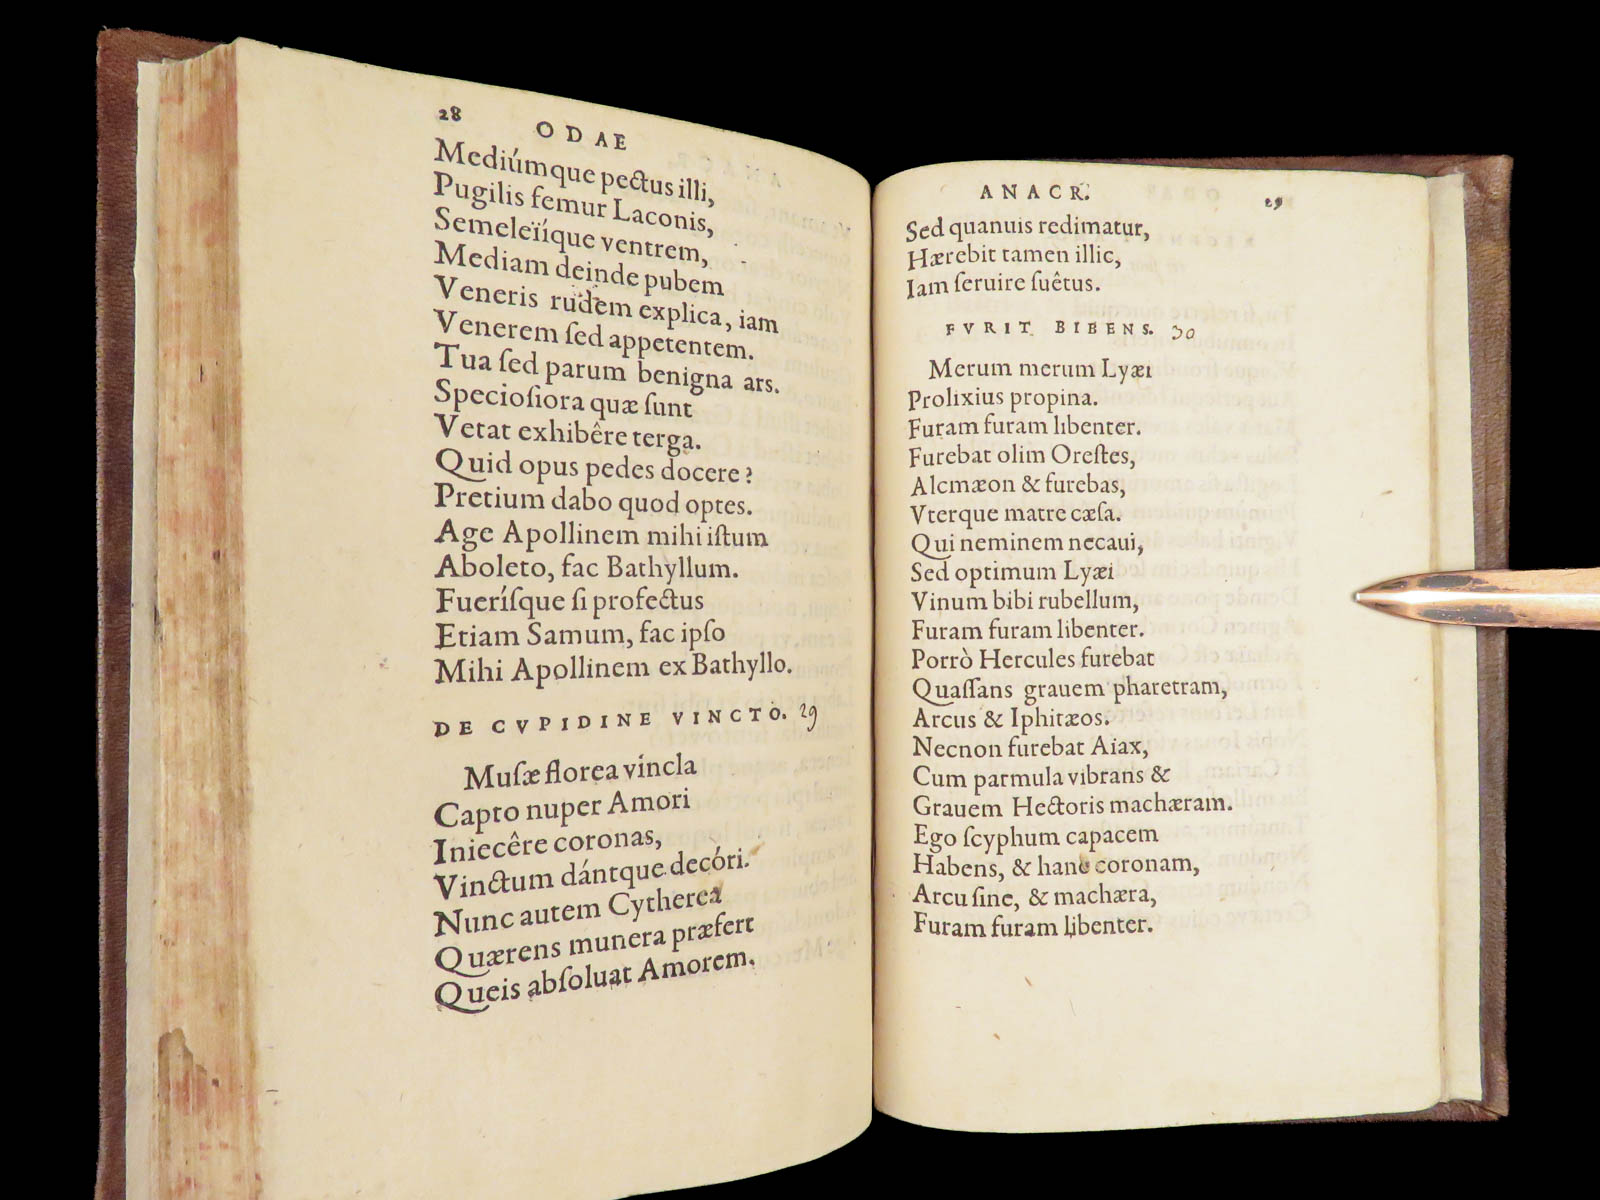 28
ODAE
Mediúmque pectus illi,
Pugilis femur Laconis,
Semeleïíque ventrem,
Mediam deinde pubem
Veneris rudem explica, iam
Venerem ſed appetentem.
Tua ſed parum benigna ars.
Specioſiora quæ ſunt
Vetat exhibêre terga.
Quid opus pedes docere?
Pretium dabo quod optes.
Age Apollinem mihi iſtum
Aboleto, fac Bathyllum.
Fueríſque ſi profectus
Etiam Samum, fac ipſo
Mihi Apollinem ex Bathyllo.
DE CVPIDINE VINCTO. 29
Muſæ florea víncla
Capto nuper Amori
Iniecêre coronas,
Vinctum dántque decóri.
Nunc autem Cytherea
Quærens munera præfert
Queis abſoluat Amorem.
ANACR.
29
Sed quanuis redimatur,
Hærebit tamen illic,
Iam ſeruire ſuêtus.
FVRIT BIBENS. 30
Merum merum Lyæi
Prolixius propina.
Furam furam libenter.
Furebat olim Oreſtes,
Alcmæon & furebas,
Vterque matre cæſa.
Qui neminem necaui,
Sed optimum Lyæi
Vinum bibi rubellum,
Furam furam libenter.
Porrò Hercules furebat
Quaſſans grauem pharetram,
Arcus & Iphitæos.
Necnon furebat Aiax,
Cum parmula vibrans &
Grauem Hectoris machæram.
Ego ſcyphum capacem
Habens, & hanc coronam,
Arcu ſine, & machæra,
Furam furam libenter.